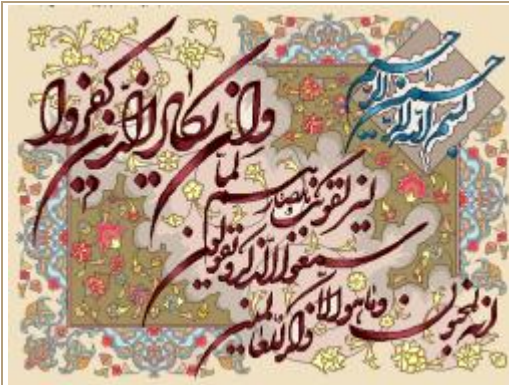 بسم الله الرحمن الرحیم
وان یکاد الذین کفروا
لیزلقونک بابصارهم لما
سمعوا الذکر و یقولون
انه لمجنون وما هو الا ذکر للعالمین